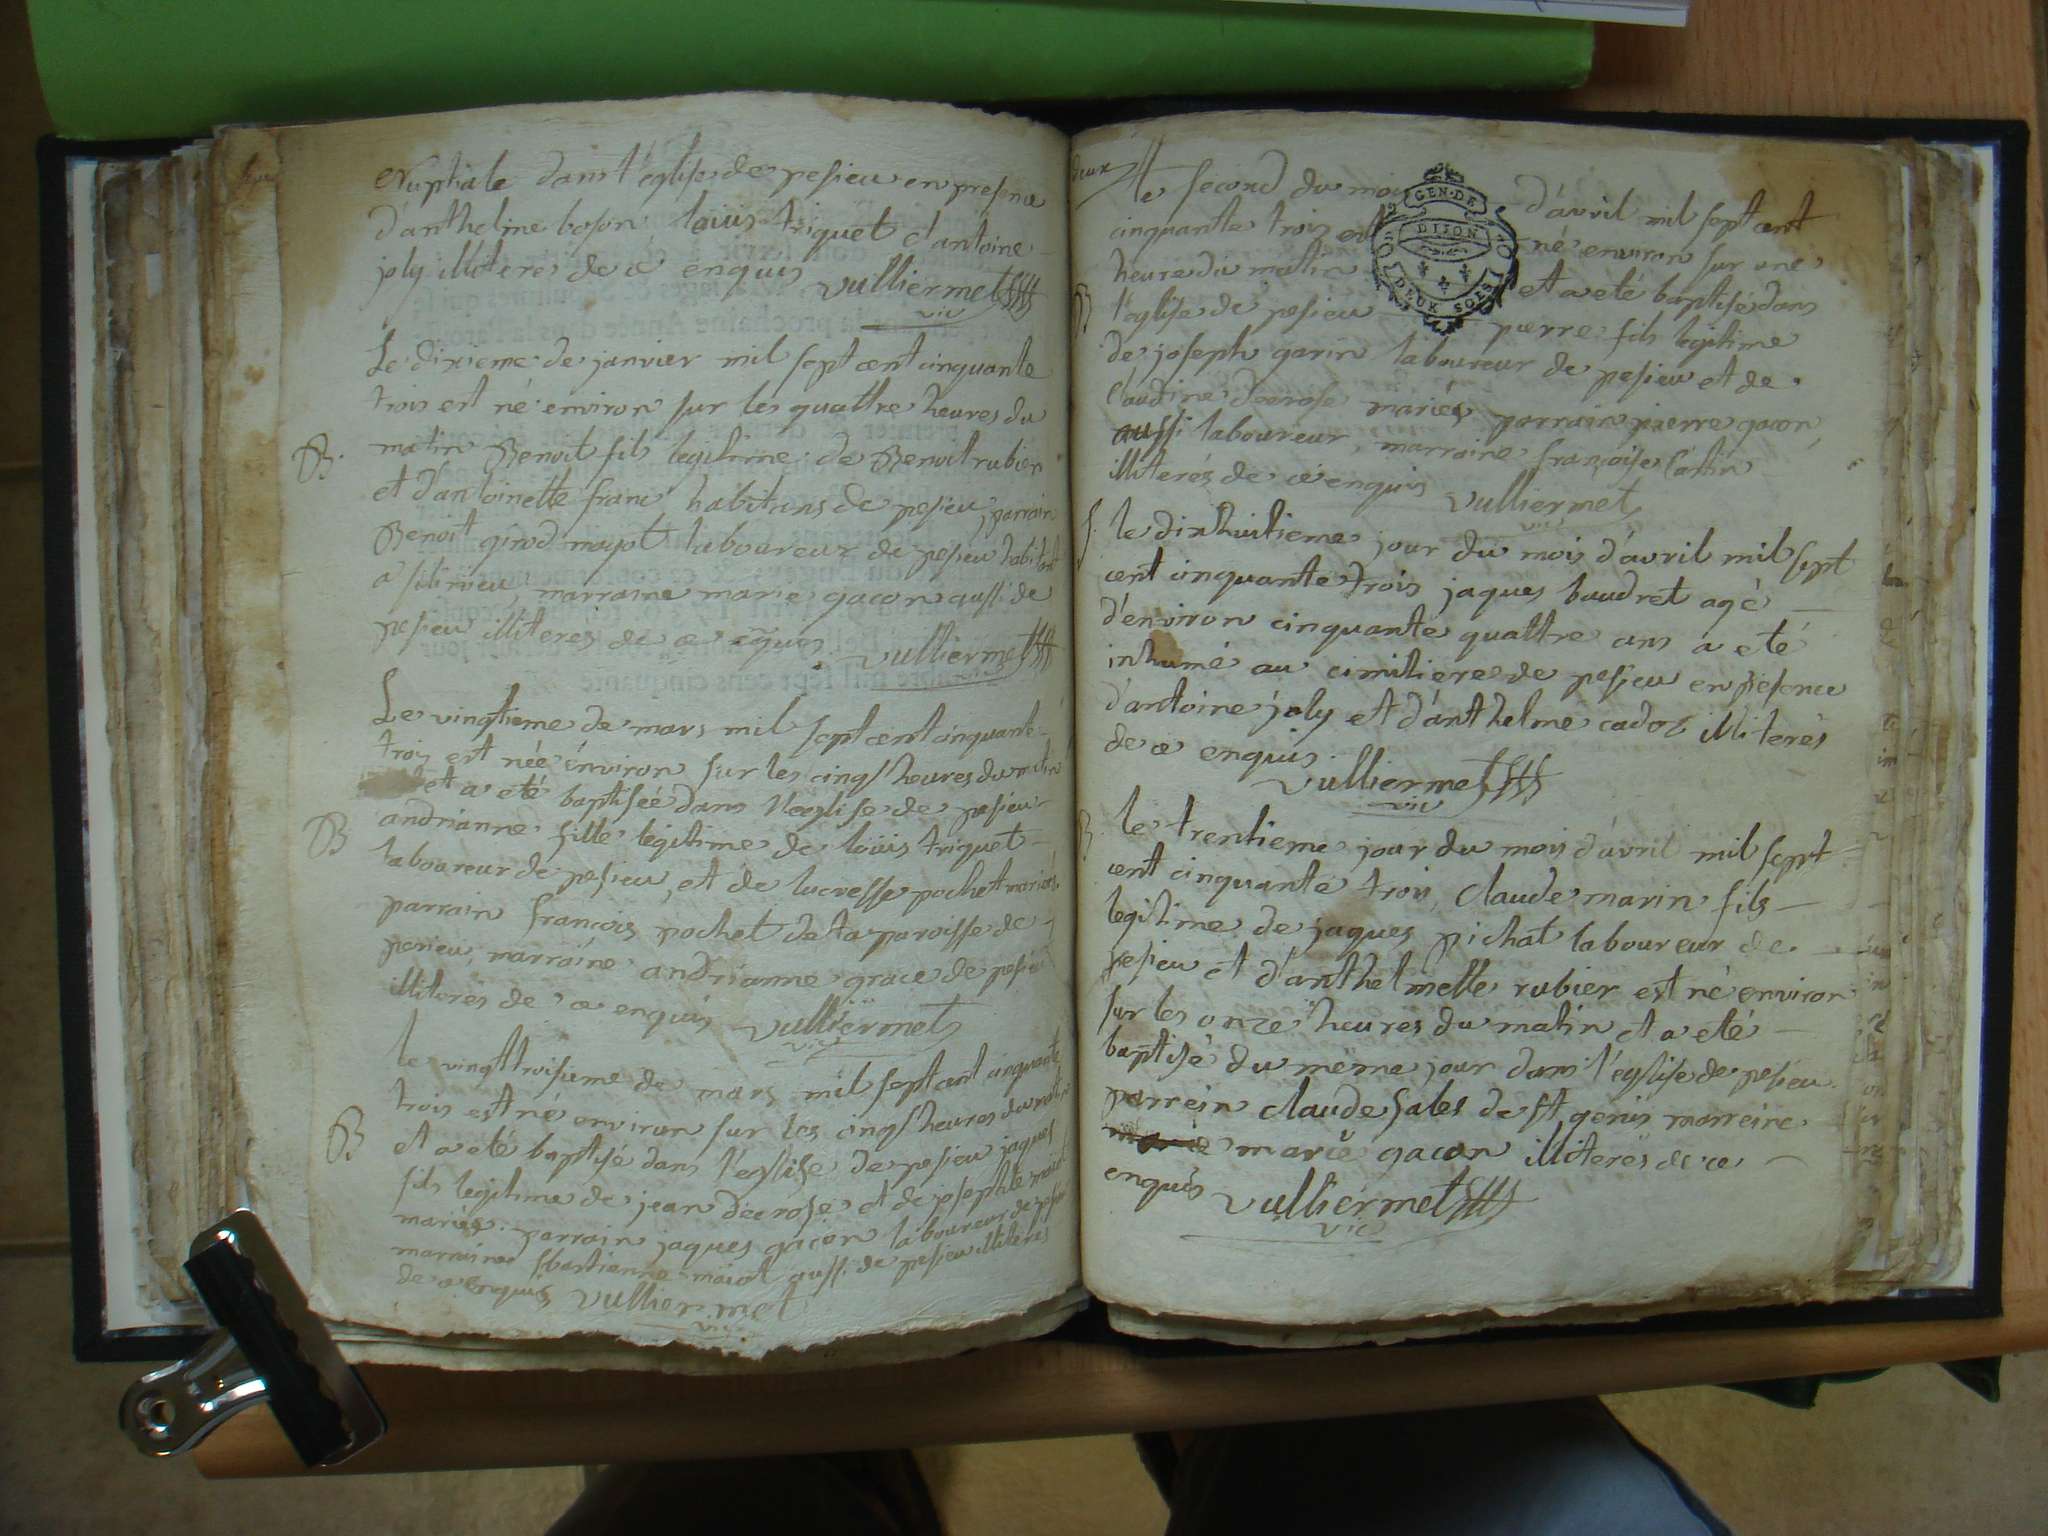 Nuptiale dans l'église de pesieu en presence
d'anthelme boson louis triquet d'antoine
joly illiteres de ce enquis vulliermet
vic
Le dixieme de janvier mil sept cent cinquante
trois est né environ sur les quattre heures du
B. matin Benoit fils legitime de Benoit rubier
et d'antoinette franc habitans de pesieu, parrain
Benoit girod mayot laboureur de pesieu habitant
a marraine marie gacon aussi de
pesieu illiteres de ce enquis vulliermet
Le vingtieme de mars mil sept cent cinquante
trois est née environ sur les cinqs heures du matin
et a eté baptisée dans l'eglise de pesieu
B andrianne fille legitime de loüis triquet
laboureur de pesieu, et de lucresse pochet mariés,
parrain francois pochet de la paroisse de
pesieu, marraine andrianne grace de pesieu
illiterés de ce enquis vulliermet
vic
le vingt troisieme de mars mil sept cent cinquante
trois est né environ sur les cinqs heures du matin
B et a eté baptisé dans l'eglise de pesieu jaques
fils legitime de jean decrose et de josephte maiot
mariés. parrain jaques gacon laboureur de pesieu
marraine sbastienne maiot aussi de pesieu illiteres
de ce enquis vulliermet
vic
deux
le second du mois d'avril mil sept cent
cinquante trois est né environ sur une
heure du matin et a eté baptisé dans
B l'eglise de pesieu pierre fils legitime
de joseph garin laboureur de pesieu et de
claudine decrose mariés parrain pierre gacon
aussi laboureur, marraine françoise
illiterés de ce enquis vulliermet
vic
GEN. DE
DIJON
DEUX SOLS
S. le dixhuitieme jour du mois d'avril mil sept
cent cinquante trois jaques baudret agé
d'environ cinquante quattre ans a eté
inhumé au cimitiere de pesieu en presence
d'antoine joly et d'anthelme cador illiterés
de ce enquis
vulliermet
vic
B le trentieme jour du mois d'avril mil sept
cent cinquante trois, claude marin fils
legitime de jaques pichat laboureur de
pesieu et d'anthelmette rubier est né environ
sur les onze heures du matin et a eté
baptisé du même jour dans l'église de pesieu
parrein claude sales de st genis marreine
marie gacon illiterés de ce
enquis vulliermet
vic